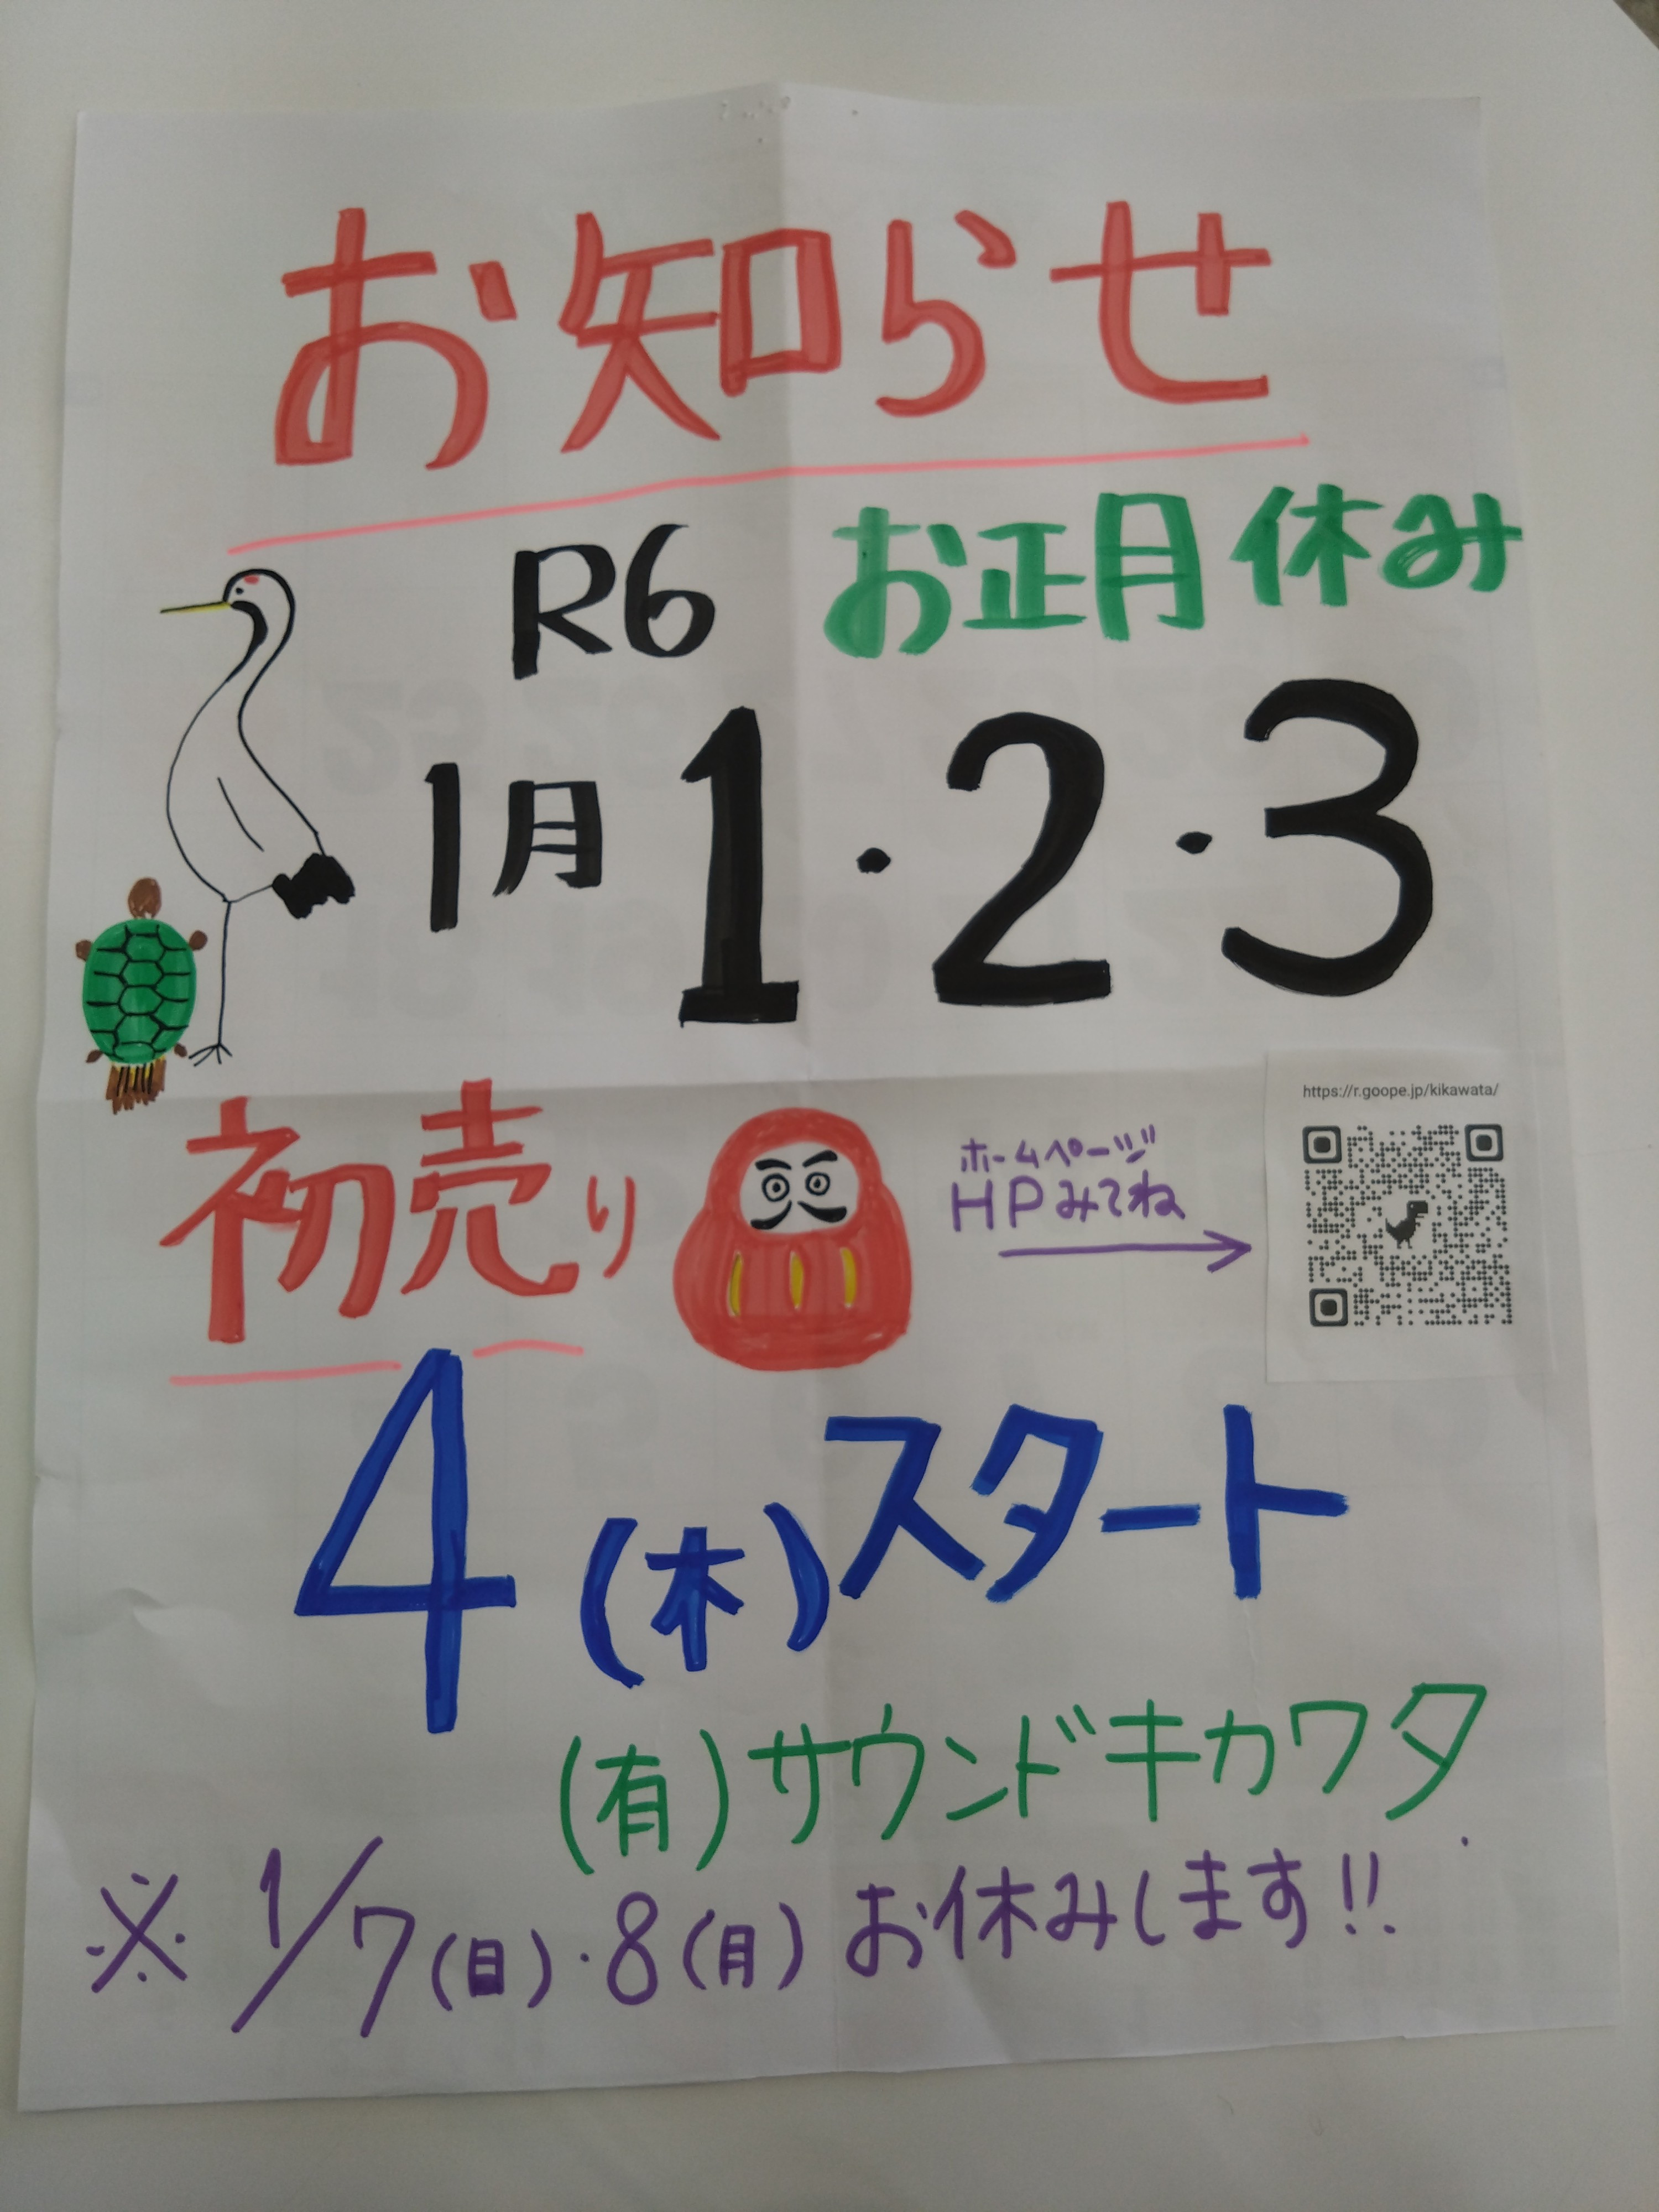 お知らせ
R6 お正月休み
1月 1・2・3
https://r.goope.jp/kikawata/
初売り
ホームページ
HPみてね
4(木)スタート
(有)サウンドキカワタ
※ 1/7(日)・8(月) お休みします!!